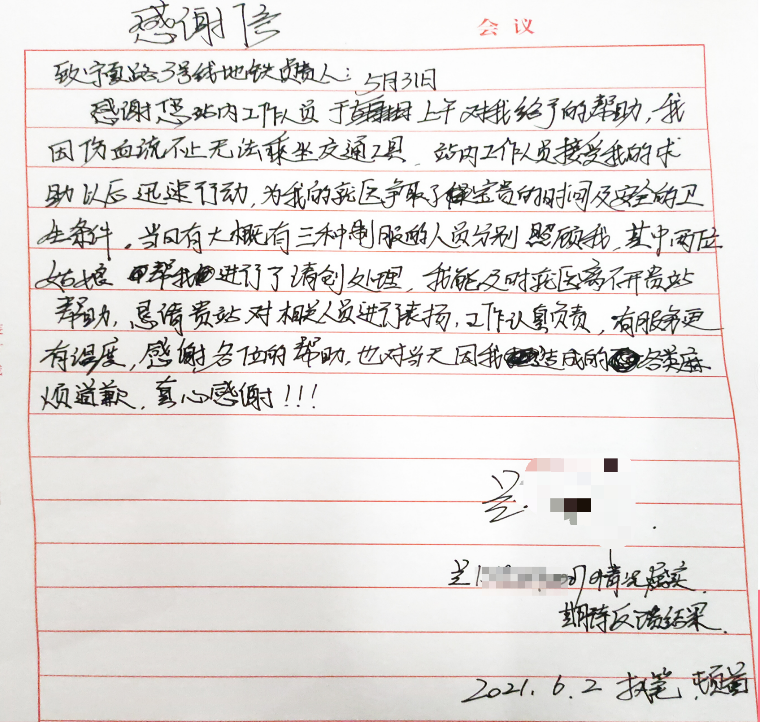 感谢信
会议
致宁夏路3号线地铁负责人：
5月31日
感谢您站内工作人员于上午对我给予的帮助，我
因伤血流不止无法乘坐交通工具，站内工作人员接受我的求
助以后迅速行动，为我的就医争取了宝贵的时间及安全的卫
生条件。当日有大概有三种制服的人员分别照顾我，其中两位
姑娘帮我进行了清创处理，我能及时就医离不开贵站
帮助，恳请贵站对相关人员进行表扬，工作认真负责，有服务更
有温度，感谢各位的帮助，也对当天因我造成的各类麻
烦道歉，真心感谢！！！
兰
兰1
情况属实
期待反馈结果
2021.6.2 执笔 顿首